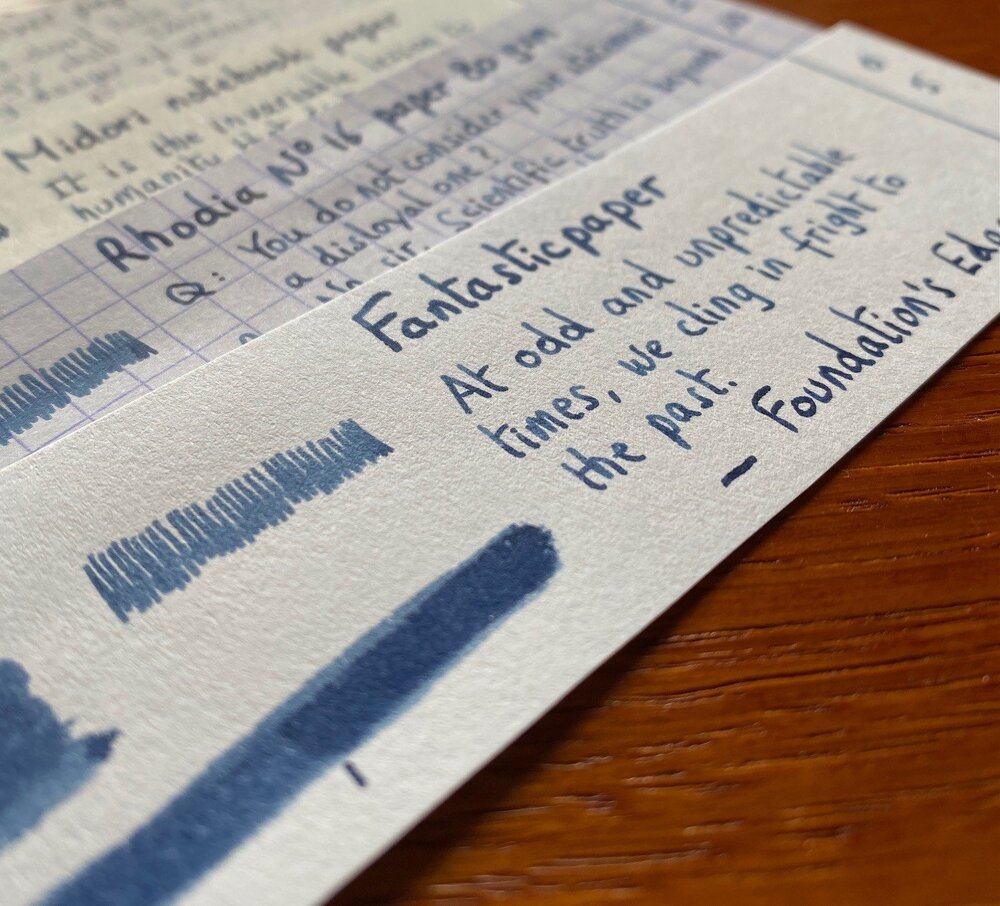 Midori notebook paper
It is the invariable lesson to
humanity that
Rhodia N° 16 paper 80 gsm
Q: You do not consider your statement
a disloyal one?
No sir. Scientific truth is beyond
Fantasticpaper
0
5
At odd and unpredictable
times, we cling in fright to
the past.
— Foundation's Edge